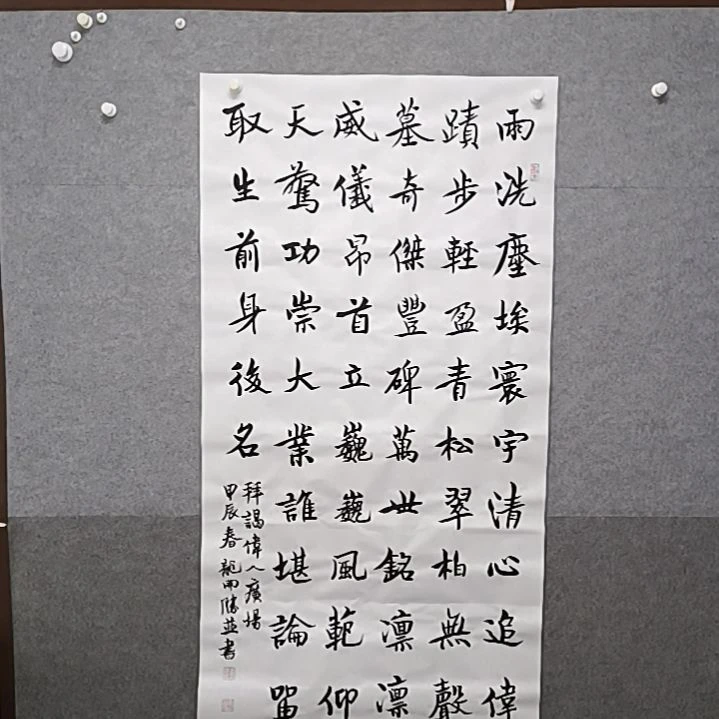 雨洗塵埃寰宇清心追偉
蹟步輕盈青松翠柏無聲
墓奇傑豐碑萬世銘凛凛
威儀昂首立巍巍風範仰
天驚功崇大業誰堪論單
取生前身後名
拜謁偉人廣場
甲辰春龍雨勝並書